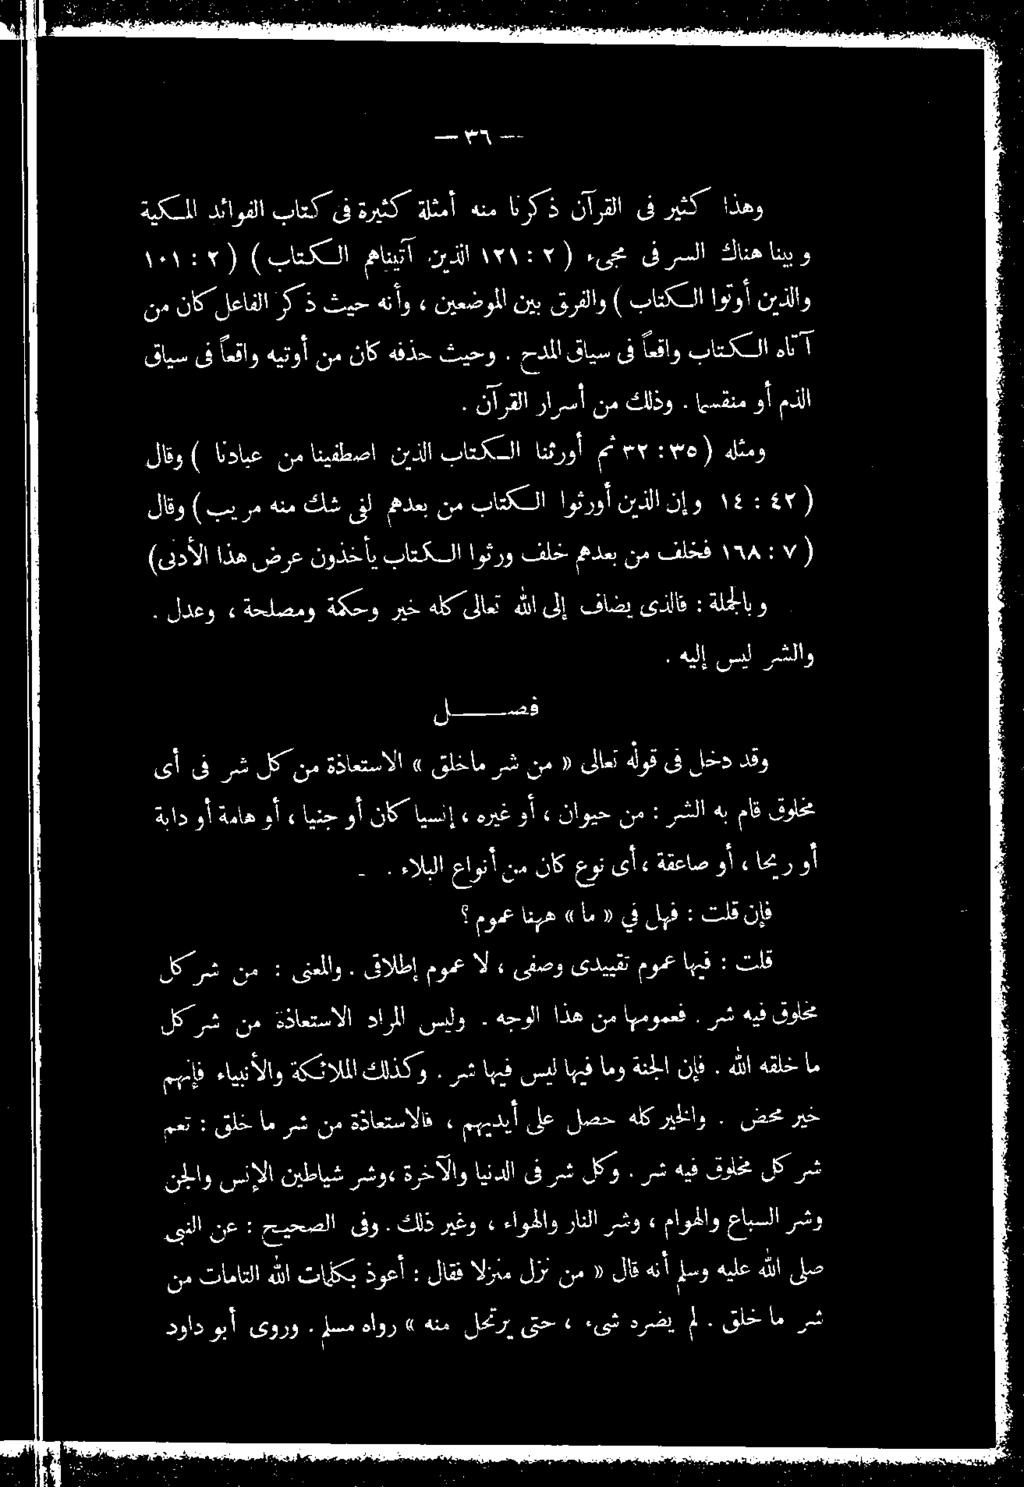 — ٣٦ —
وهذا كثير فى القرآن ذكرنا منه أمثلة كثيرة فى كتاب الفوائد المكية
وبينا هناك السر فى مجىء ( ٢ : ١٢١ الذين آتيناهم الكتاب ) ( ٢ : ١٠١
والذين أوتوا الكتاب ) والفرق بين الموضعين ، وأنه حيث ذكر الفاعل كان من
آتاه الكتاب واقعاً فى سياق المدح . وحيث حذفه كان من أوتيه واقعاً فى سياق
الذم أو منقسما . وذلك من أسرار القرآن .
ومثله ( ٣٥ : ٣٢ ثم أورثنا الكتاب الذين اصطفينا من عبادنا ) وقال
( ٤٢ : ١٤ وإن الذين أورثوا الكتاب من بعدهم لفى شك منه مريب ) وقال
( ٧ : ١٦٨ فخلف من بعدهم خلف ورثوا الكتاب يأخذون عرض هذا الأدنى )
وبالجملة : فالذى يضاف إلى الله تعالى كله خير وحكمة ومصلحة ، وعدل .
والشر ليس إليه .
فصــــل
وقد دخل فى قوله تعالى « من شر ماخلق » الاستعاذة من كل شر فى أى
مخلوق قام به الشر : من حيوان ، أو غيره ، إنسيا كان أو جنيا ، أو هامة أو دابة
أو ريحا ، أو صاعقة ، أى نوع كان من أنواع البلاء .
فإن قلت : فهل في « ما » ههنا عموم ؟
قلت : فيها عموم تقييدى وصفى ، لا عموم إطلاقى . والمعنى : من شر كل
مخلوق فيه شر . فعمومها من هذا الوجه . وليس المراد الاستعاذة من شر كل
ما خلقه الله . فإن الجنة وما فيها ليس فيها شر . وكذلك الملائكة والأنبياء فإنهم
خير محض . والخير كله حصل على أيديهم ، فالاستعاذة من شر ما خلق : تعم
شر كل مخلوق فيه شر . وكل شر فى الدنيا والآخرة ، وشر شياطين الإنس والجن
وشر السباع والهوام ، وشر النار والهواء ، وغير ذلك . وفى الصحيح : عن النبى
صلى الله عليه وسلم أنه قال « من نزل منزلا فقال : أعوذ بكلمات الله التامات من
شر ما خلق . لم يضره شىء ، حتى يرتحل منه » رواه مسلم . وروى أبو داود